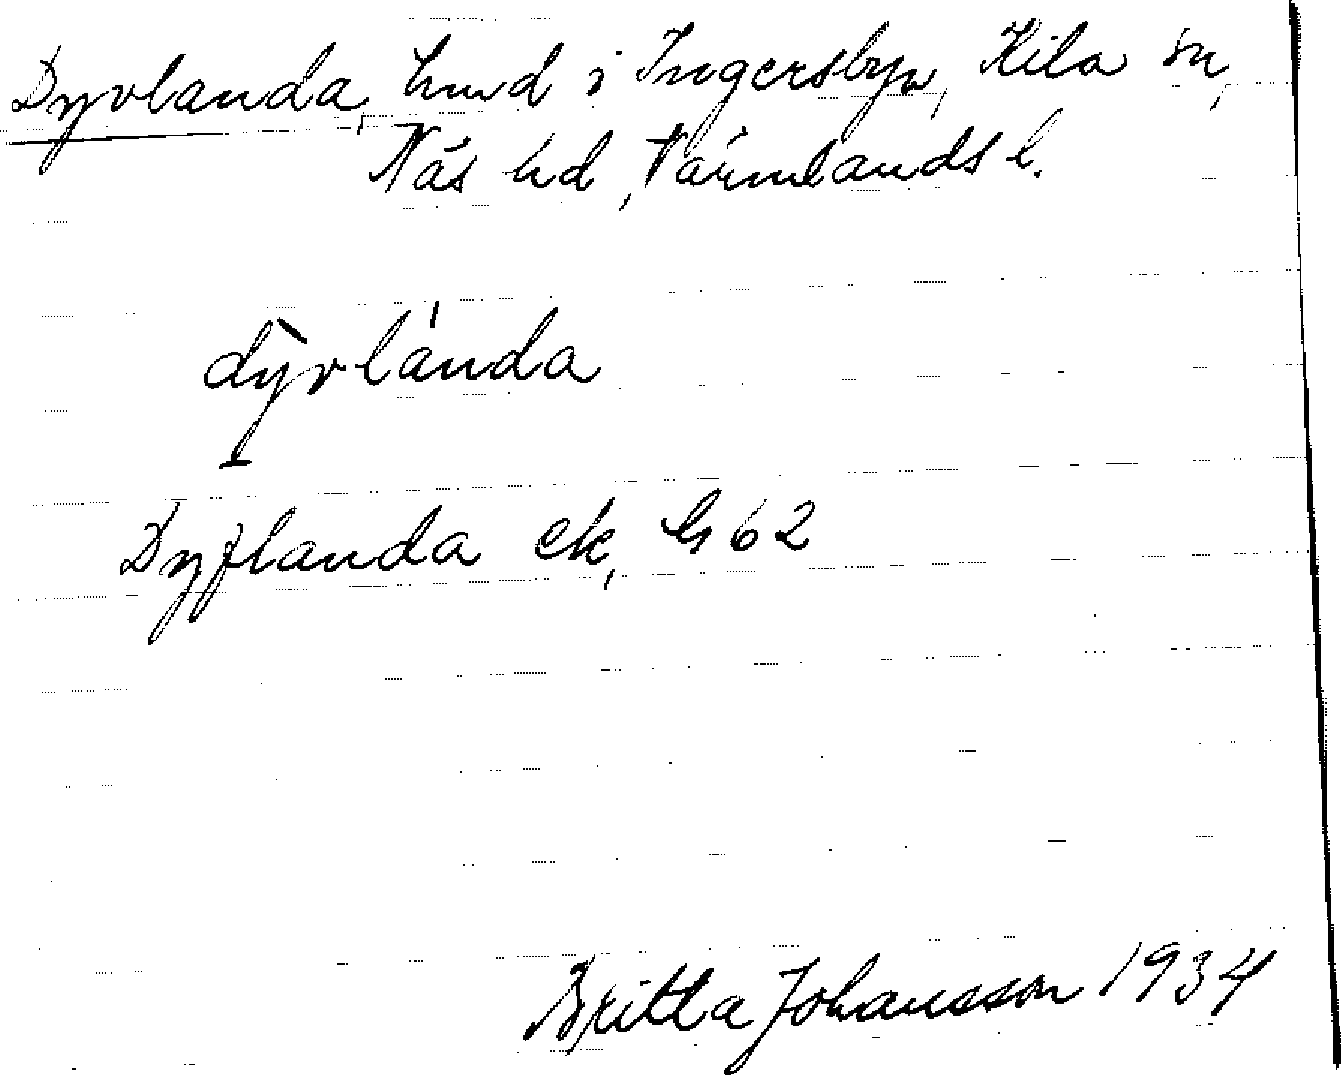 Dyvlanda, hmd i Ingersbyn, Kila sn,
Näs hd, Värmlands l.
dỳvlánda
Dyflanda ek, G 62
Britta Johansson 1934